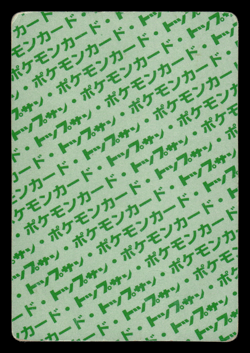 ポケモンカード・
トップサン・ポケモンカード・トップサン
カード・トップサン・ポケモンカード
ポケモンカード・トップサン・
トップサン・ポケモンカード・トップサン
カード・トップサン・ポケモンカード
ポケモンカード・トップサン・
トップサン・ポケモンカード・トップサン
カード・トップサン・ポケモンカード
ポケモンカード・トップサン・
トップサン・ポケモンカード・トップサン
カード・トップサン・ポケモンカード
ポケモンカード・トップサン